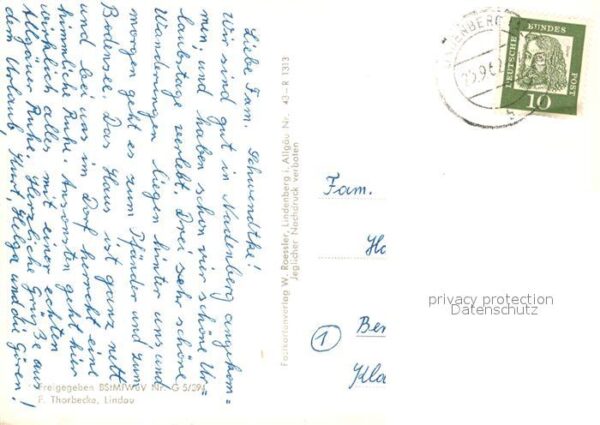 Liebe Fam. Schwendtke!
Wir sind gut in Nadenberg angekom=
men, und haben schon vier schöne Ur=
laubstage verlebt. Drei sehr schöne
Wanderungen liegen hinter uns und
morgen geht es zum Pfänder und zum
Bodensee. Das Haus ist ganz nett
und bei uns im Dorf herrscht eine
himmlische Ruhe. Ansonsten geht hier
wirklich alles mit einer echten
Allgäuer Ruhe. Herzliche Grüße aus
dem Urlaub, Kurt, Helga und die Gören!
Freigegeben BStMfWuV Nr. G 5/294
F. Thorbecke, Lindau
Postkartenverlag W. Roessler, Lindenberg i. Allgäu Nr. 43-R 1313
Jeglicher Nachdruck verboten
25.9.62
DEUTSCHE BUNDESPOST
10
Fam.
Ha
1 Ber
Kla
privacy protection
Datenschutz